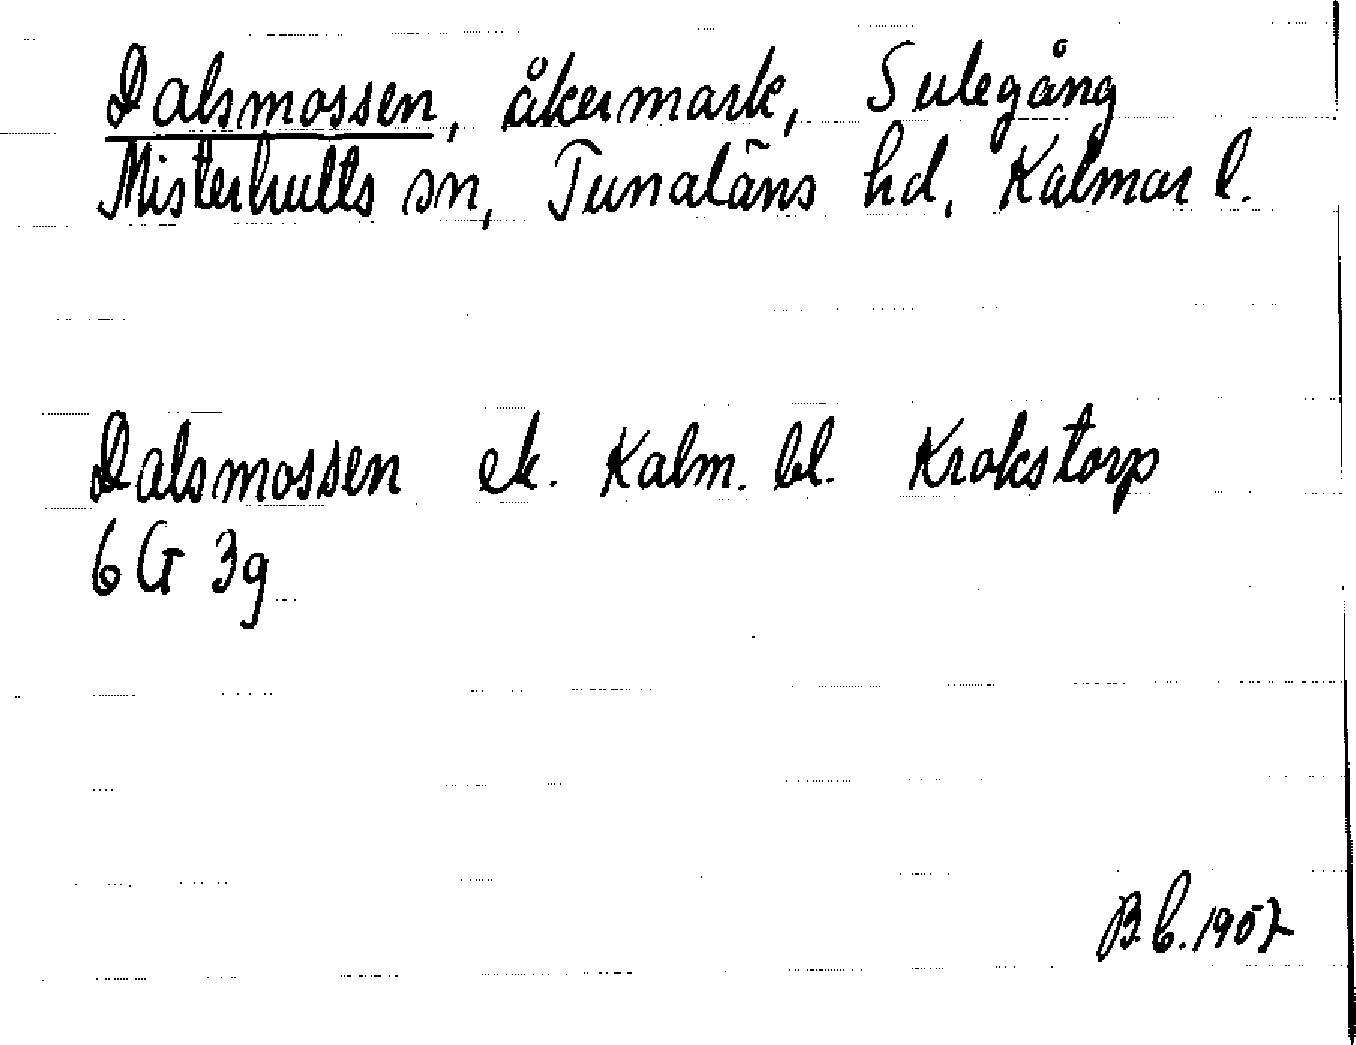 Dalsmossen, åkermark, Sulegång
Misterhults sn, Tunaläns hd, Kalmar l.
Dalsmossen ek. Kalm. bl. Krokstorp
6 G 3g
1957